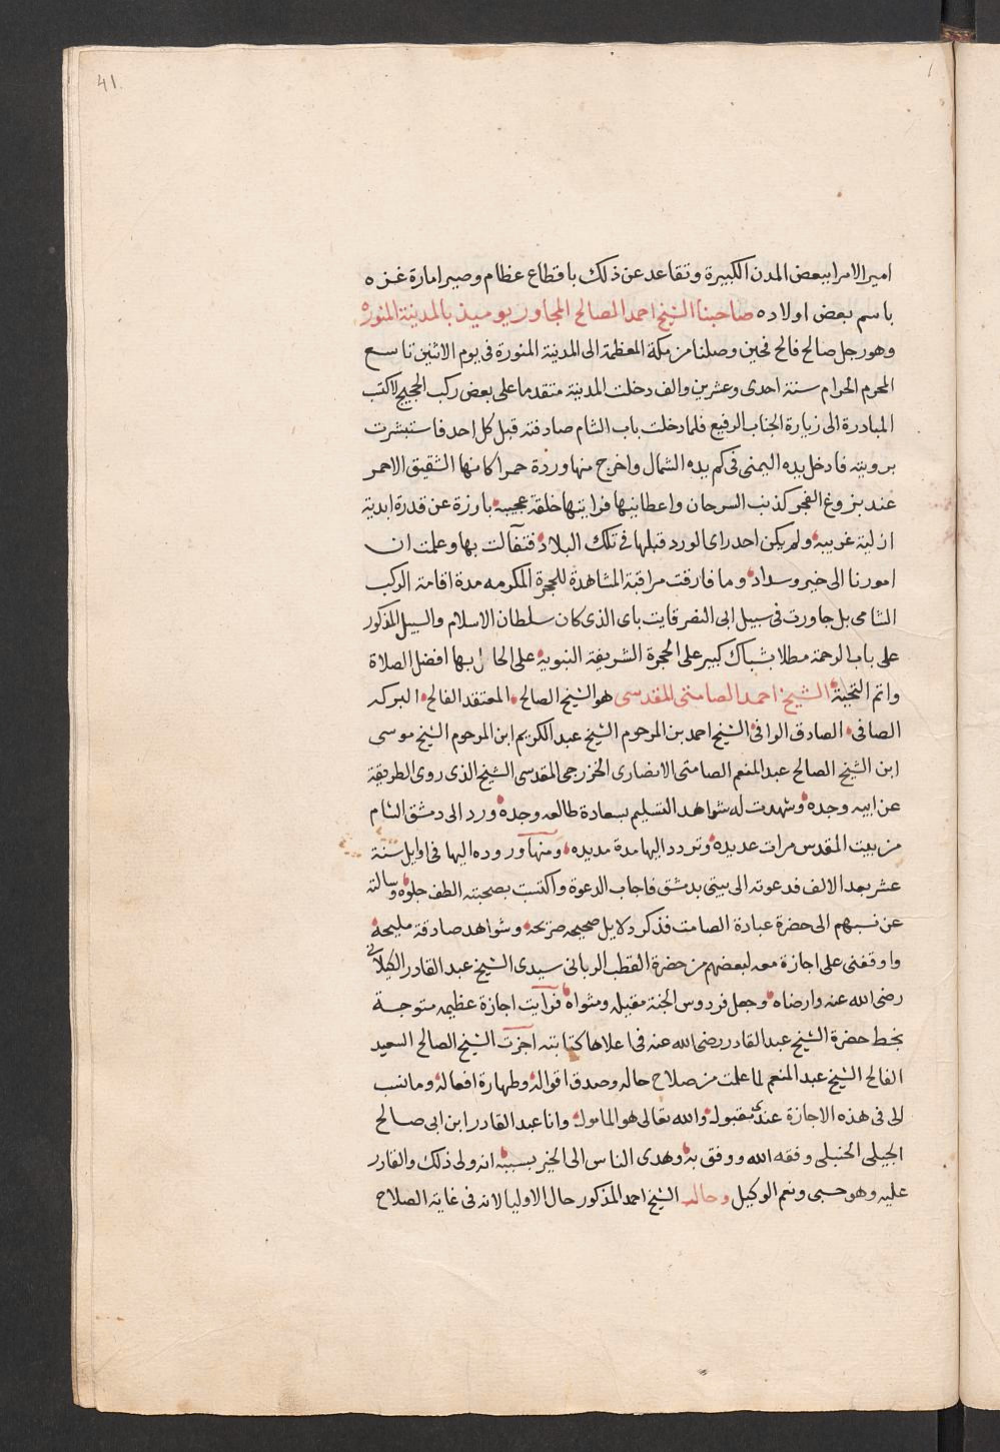 41
امير الامرا ببعض المدن الكبيرة وتقاعد عن ذلك باقطاع عظام وصير امارة غزه
باسم بعض اولاده صاحبنا الشيخ احمد الصالح المجاور يوميذ بالمدينة المنوره
وهو رجل صالح فالح فحين وصلنا من مكة المعظمة الى المدينة المنورة فى يوم الاثنين تاسع
المحرم الحرام سنة احدى وعشرين والف دخلت المدينة متقدما على بعض ركب الحجيج لاكتب
المبادرة الى زيارة الجناب الرفيع فلما دخلت باب الشام صادفته قبل كل احد فاستبشرت
برويته فادخل يده اليمنى فى كم يده الشمال واخرج منها وردة حمرا كانها الشقيق الاحمر
عند بزوغ الفجر كذنب السرحان واعطانيها فرايتها خلقة عجيبه بارزة عن قدرة ابدية
ازلية غريبه ولم يكن احد راى الورد قبلها فى تلك البلاد فتفآلت بها وعلمت ان
امورنا الى خير وسداد وما فارقت مراقبة المشاهدة للحجرة المكرمه مدة اقامة الركب
الشامى بل جاورت فى سبيل ابى النصر قايت باى الذى كان سلطان الاسلام والسبيل المذكور
على باب الرحمة مطلا بشباك كبير على الحجرة الشريفة النبوية على الحال بها افضل الصلاة
واتم التحية الشيخ احمد الصامتى المقدسى هو الشيخ الصالح المعتقد الفالح البركه
الصافى الصادق الوافى الشيخ احمد بن المرحوم الشيخ عبد الكريم ابن المرحوم الشيخ موسى
ابن الشيخ الصالح عبد المنعم الصامتى الانصارى الخزرجى المقدسى الشيخ الذى روى الطريقة
عن ابيه وجده وشهدت له شواهد التسليم بسعادة طالعه وجده ورد الى دمشق الشام
من بيت المقدس مرات عديده وتردد اليها مدة مديده ومنها وروده اليها فى اوايل سنة
عشر بعد الالف فدعوته الى بيتى بدمشق فاجاب الدعوة واكتسبت بصحبته الطف جلوه وسالته
عن نسبهم الى حضرة عبادة الصامت فذكر دلايل صحيحه صريحه وشواهد صادقة مليحه
واوقفنى على اجازة معه لبعضهم من حضرة القطب الربانى سيدى الشيخ عبد القادر الكيلانى
رضى الله عنه وارضاه وجعل فردوس الجنة مقيله ومثواه فرايت اجازة عظيمه متوجة
بخط حضرة الشيخ عبد القادر رضى الله عنه فى اعلاها كتابته اجزت الشيخ الصالح السعيد
الفالح الشيخ عبد المنعم لما علمت من صلاح حاله وصدق اقواله وطهارة افعاله وما نسب
الى فى هذه الاجازة عندى مقبوله والله تعالى هو المامول وانا عبد القادر ابن ابى صالح
الجيلى الحنبلى وفقه الله ووفق به وهدى الناس الى الخير بسببه انه ولى ذلك والقادر
عليه وهو حسبى ونعم الوكيل وحاله الشيخ احمد المذكور حال الاوليا لانه فى غاية الصلاح